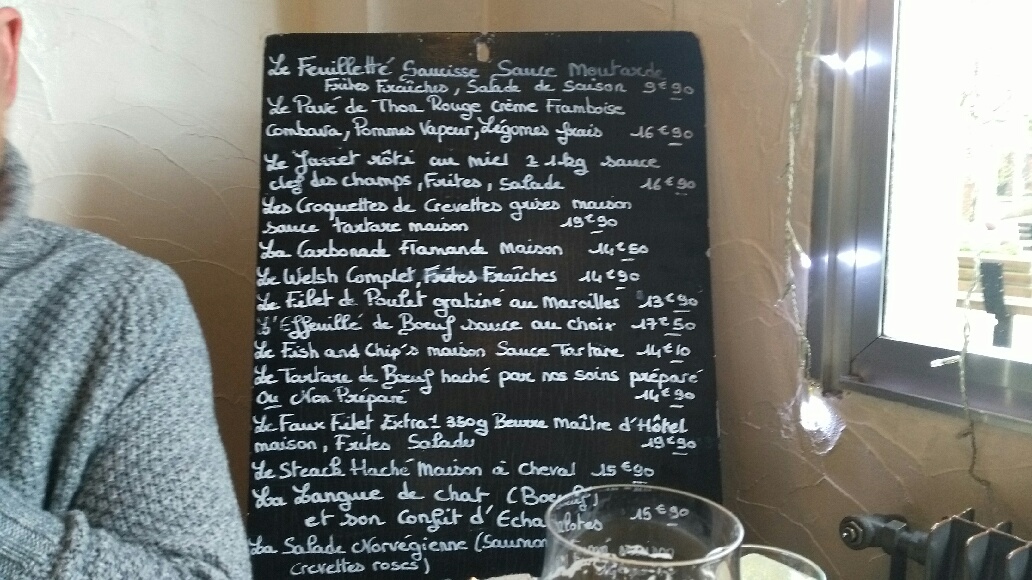 Le Feuilletté Saucisse Sauce Moutarde
Frites Fraîches, Salade de Saison 9€90
Le Pavé de Thon Rouge crème Framboise
Combava, Pommes Vapeur, Légomes frais 16€90
Le Jarret rôti au miel ± 1kg sauce
clef des champs, Frites, Salade 16€90
Les Croquettes de Crevettes grises maison
sauce tartare maison 19€90
La Carbonade Flamande maison 14€50
Le Welsh Complet, Frites Fraîches 14€90
Le Filet de Poulet gratiné au Maroilles 13€90
L'Effeuillé de Bœuf sauce au choix 17€50
Le Fish and Chip's maison Sauce Tartare 14€10
Le Tartare de Bœuf haché par nos soins préparé
Ou Non Préparé 14€90
Le Faux Filet Extra ± 350g Beurre Maître d'Hôtel
maison, Frites Salade 19€90
Le Steack Haché Maison à Cheval 15€90
La Langue de chat (Boeuf)
et son Confit d'Echalotes 15€90
La Salade Norvégienne (Saumon
Crevettes roses)